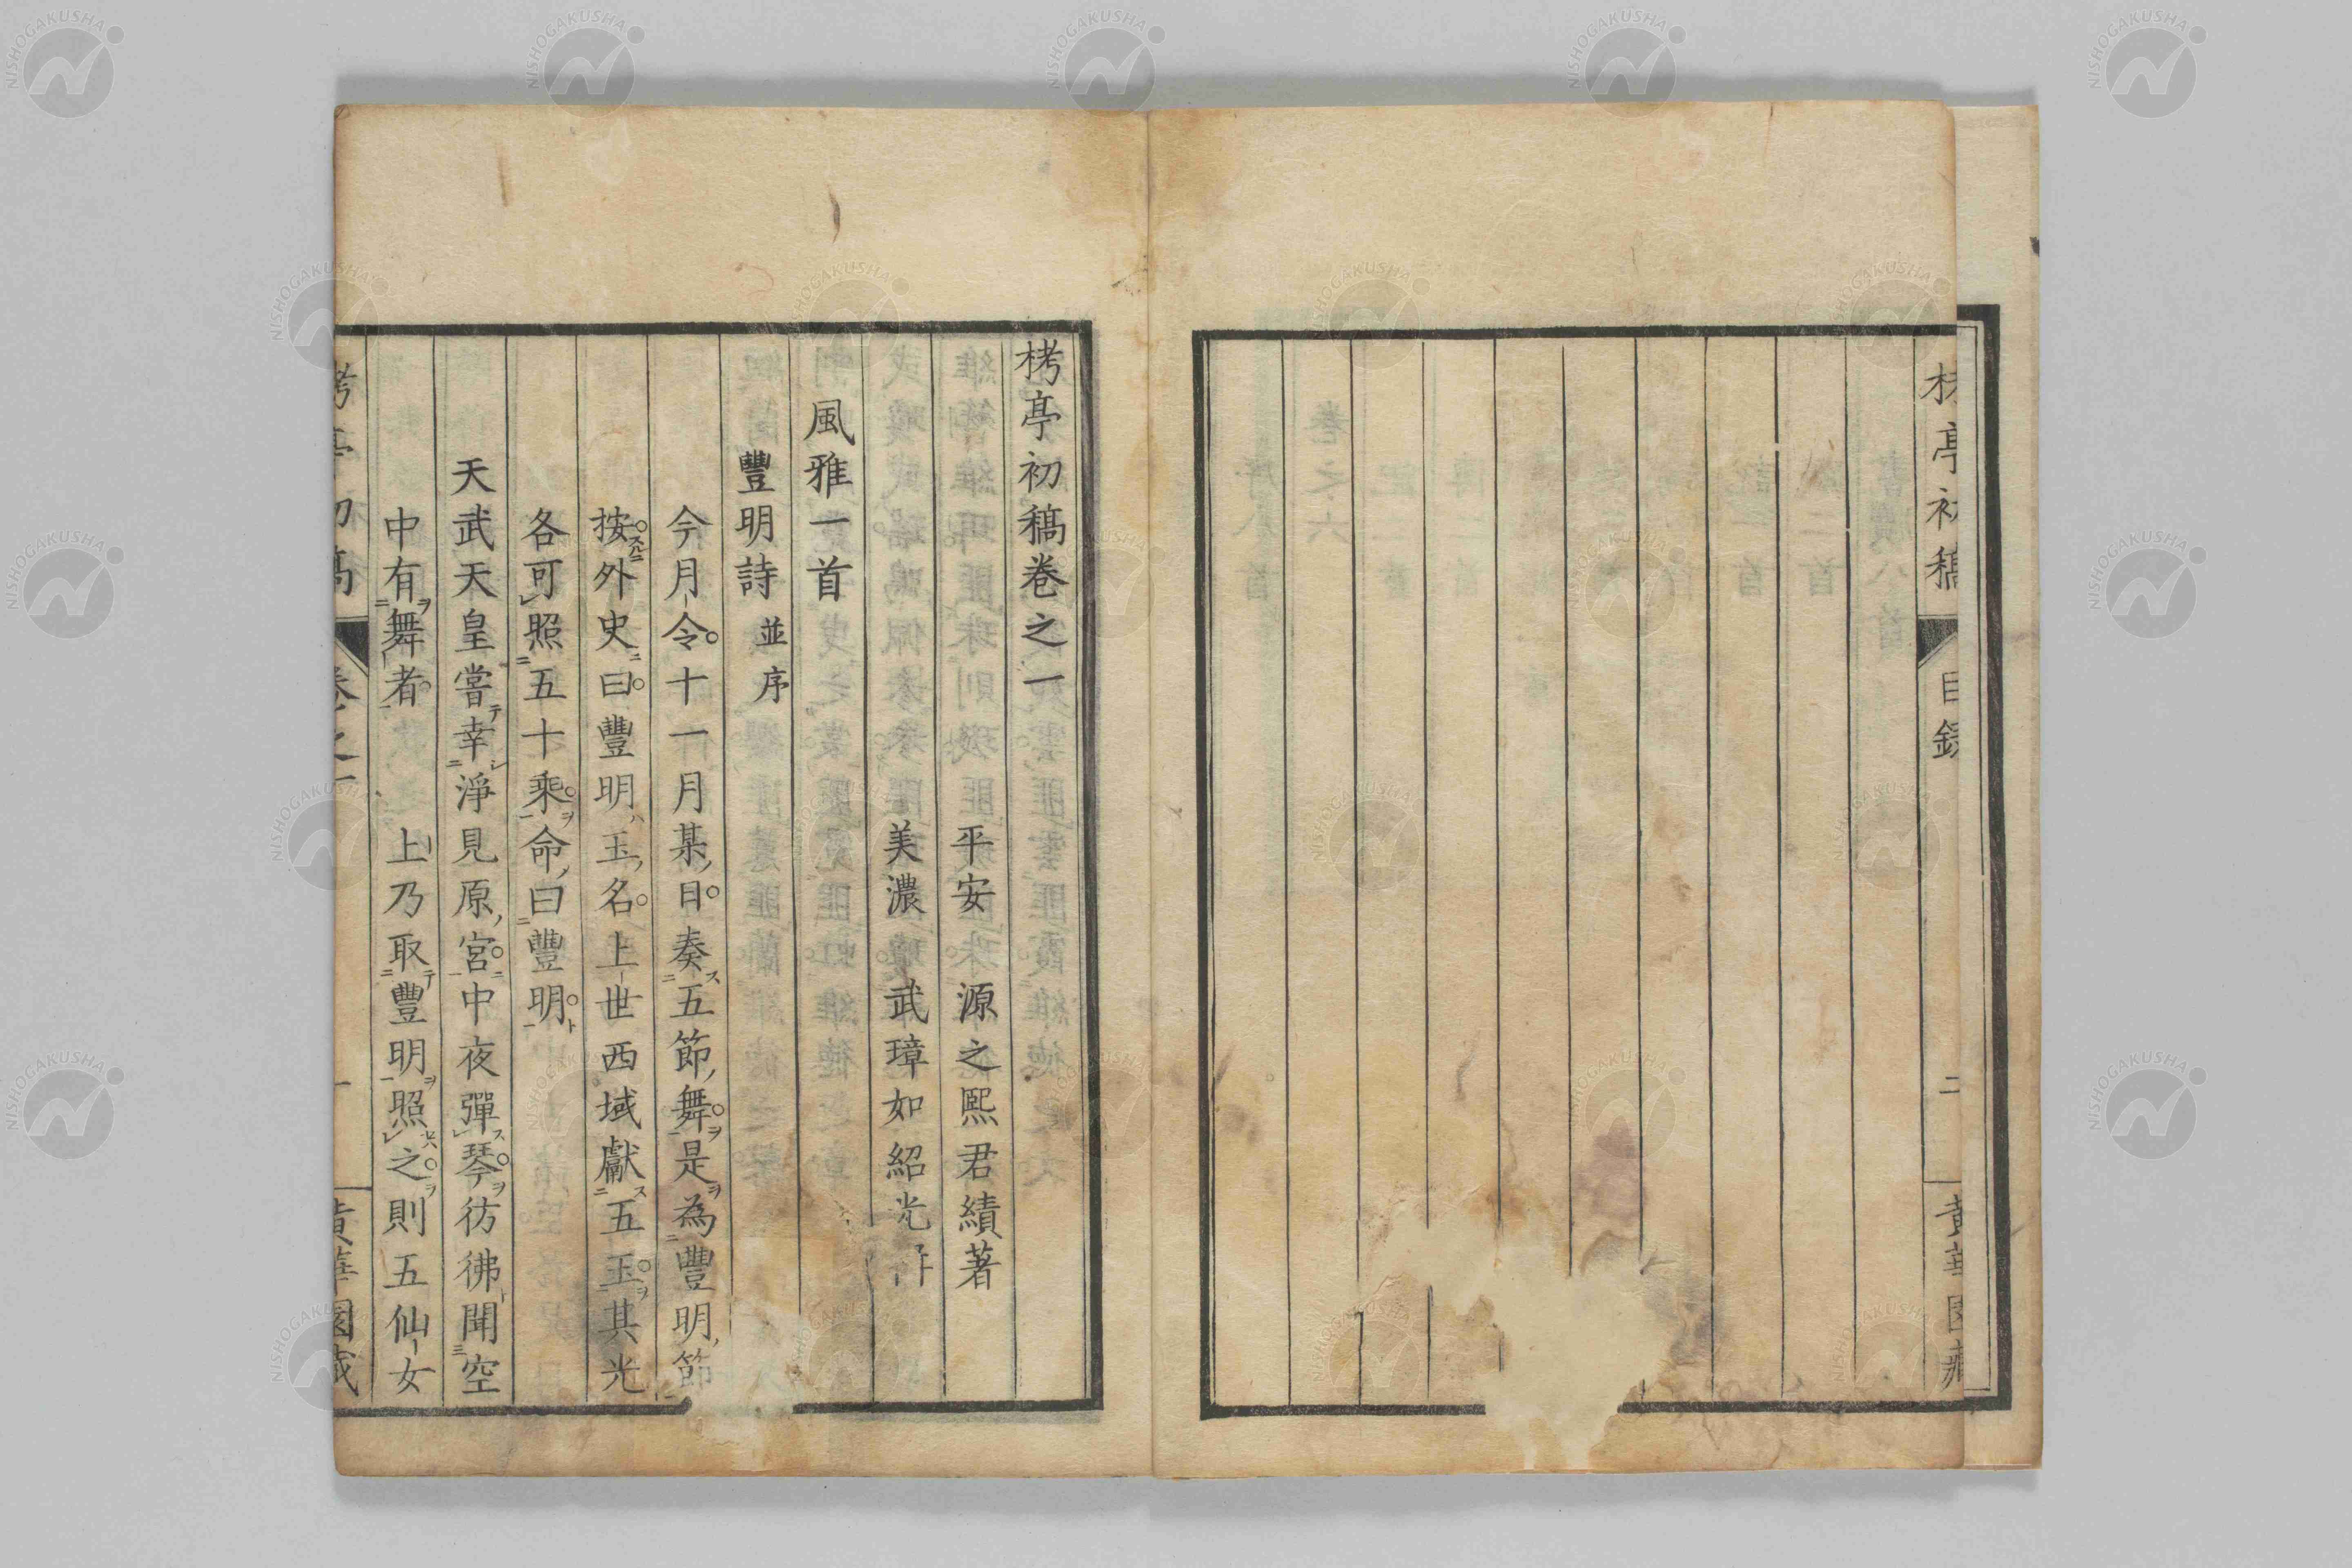 亭初稿
目錄
二
栲亭初稿卷之一
平安 源之熙君績著
美濃 武璋如紹光
風雅一首
豐明詩 並序
今月令十一月某日奏五節舞是為豐明節
按外史曰豐明玉名上世西域獻五玉其光
各可照五十乘命曰豐明
天武天皇嘗幸淨見原宮中夜彈琴彷彿聞空
中有舞者 上乃取豐明照之則五仙女
NISHOGAKUSHA